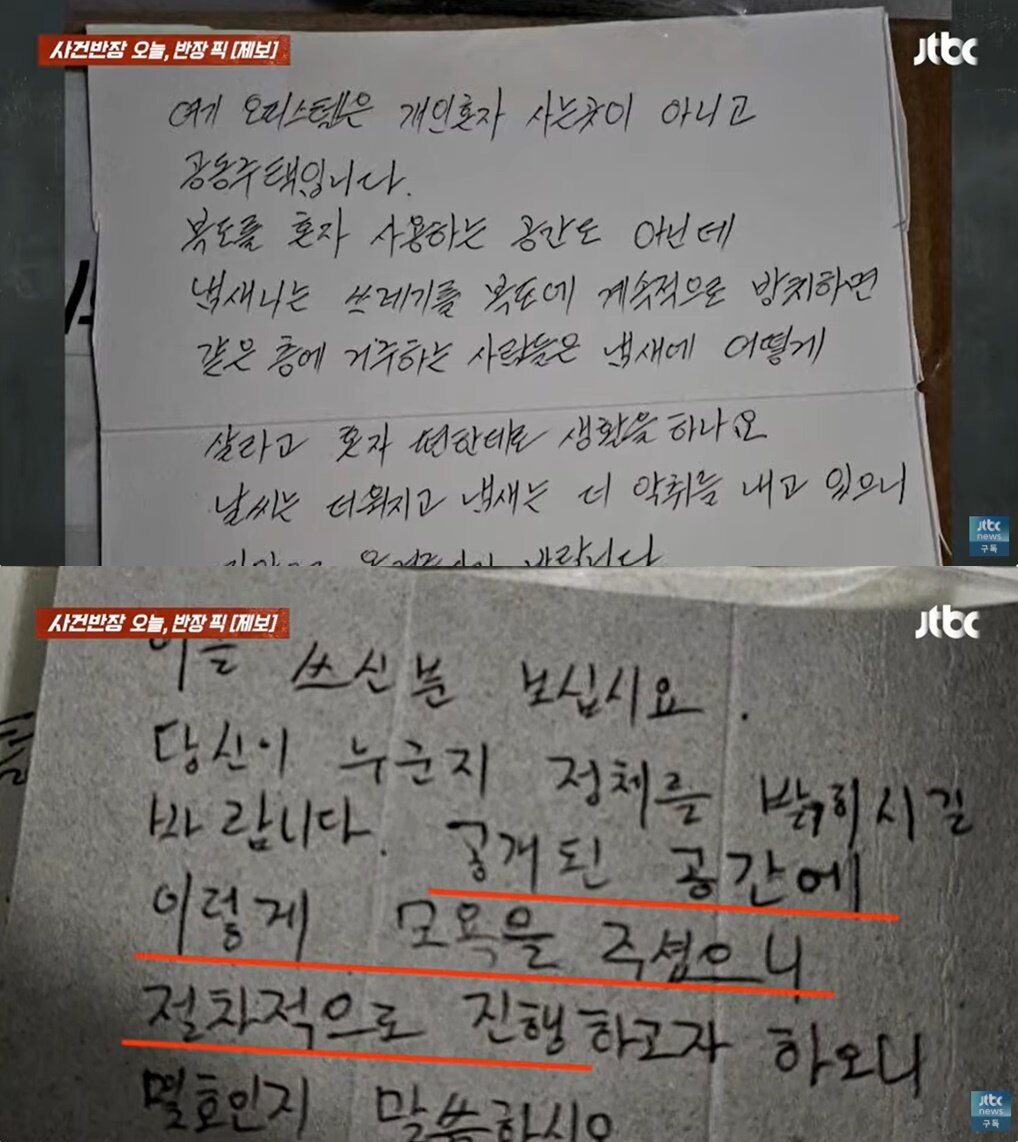 사건반장 오늘, 반장 픽 [제보]
jtbc
여게 오피스텔은 개인혼자 사는곳이 아니고
공동주택입니다.
복도를 혼자 사용하는 공간도 아닌데
냄새나는 쓰레기를 복도에 계속적으로 방치하면
같은 층에 거주하는 사람들은 냄새에 어떻게
살라고 혼자 편한데로 생활을 하나요
날씨는 더워지고 냄새는 더 악취를 내고 있으니
바랍니다
jtbc
news
구독
사건반장 오늘, 반장 픽 [제보]
jtbc
쓰신분 보십시요.
당신이 누군지 정체를 밝히시길
바랍니다. 공개된 공간에
이렇게 모욕을 주셨으니
절차적으로 진행하고자 하오니
몇호인지 말씀하시오
jtbc
news
구독